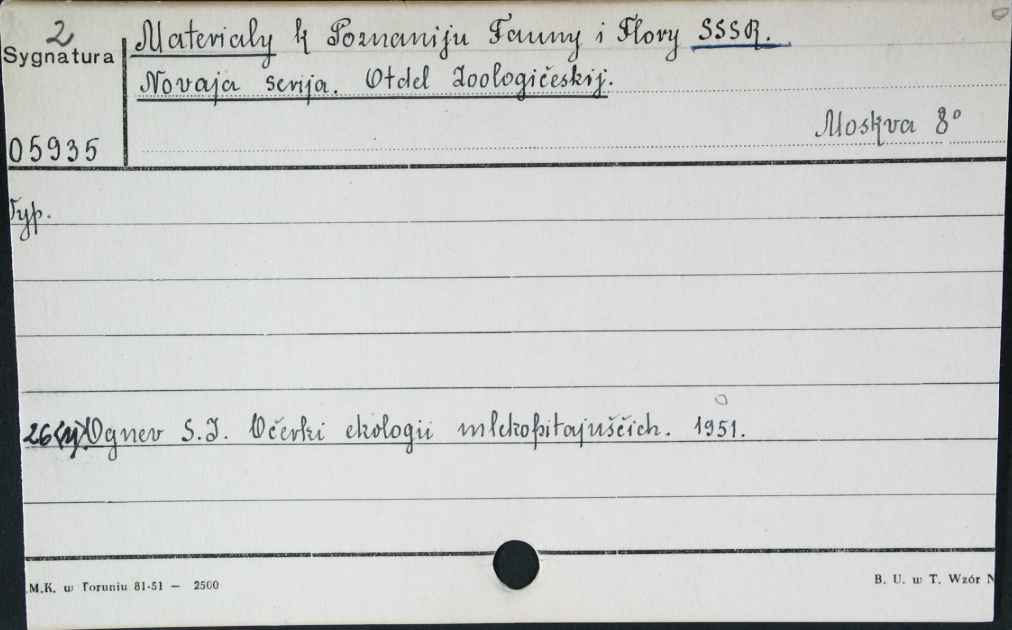 2
Sygnatura
05935
Materialy k Poznaniju Fauny i Flory SSSR.
Novaja serija. Otdel Zoologičeskij.
Moskva 8°
Typ.
26 Ognev S.I. Očerki ekologii mlekopitajuščich. 1951.
M.K. w Toruniu 81-51 — 2500
B. U. w T. Wzór N